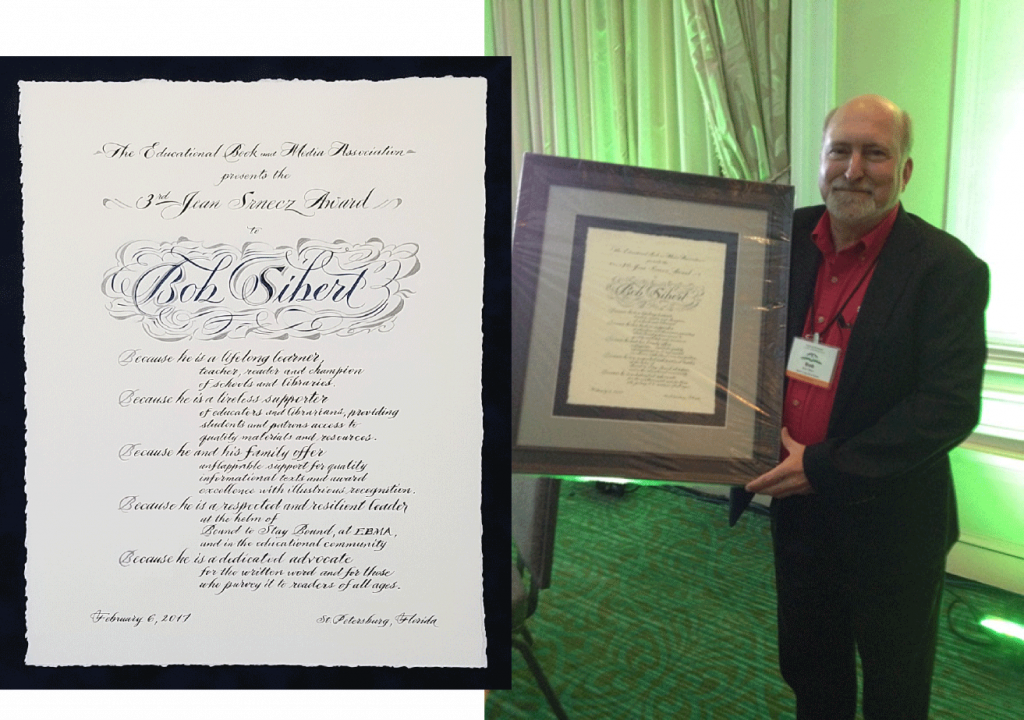 The Educational Book and Media Association
presents the
3rd Jean Srnecz Award
to
Bob Sibert
Because he is a lifelong learner,
teacher, reader and champion
of schools and libraries.
Because he is a tireless supporter
of educators and librarians, providing
students and patrons access to
quality materials and resources.
Because he and his family offer
unflappable support for quality
informational texts and award
excellence with illustrious recognition.
Because he is a respected and resilient leader
at the helm of
Bound to Stay Bound, at EBMA,
and in the educational community
Because he is a dedicated advocate
for the written word and for those
who purvey it to readers of all ages.
February 6, 2017
St. Petersburg, Florida
Bob Sibert